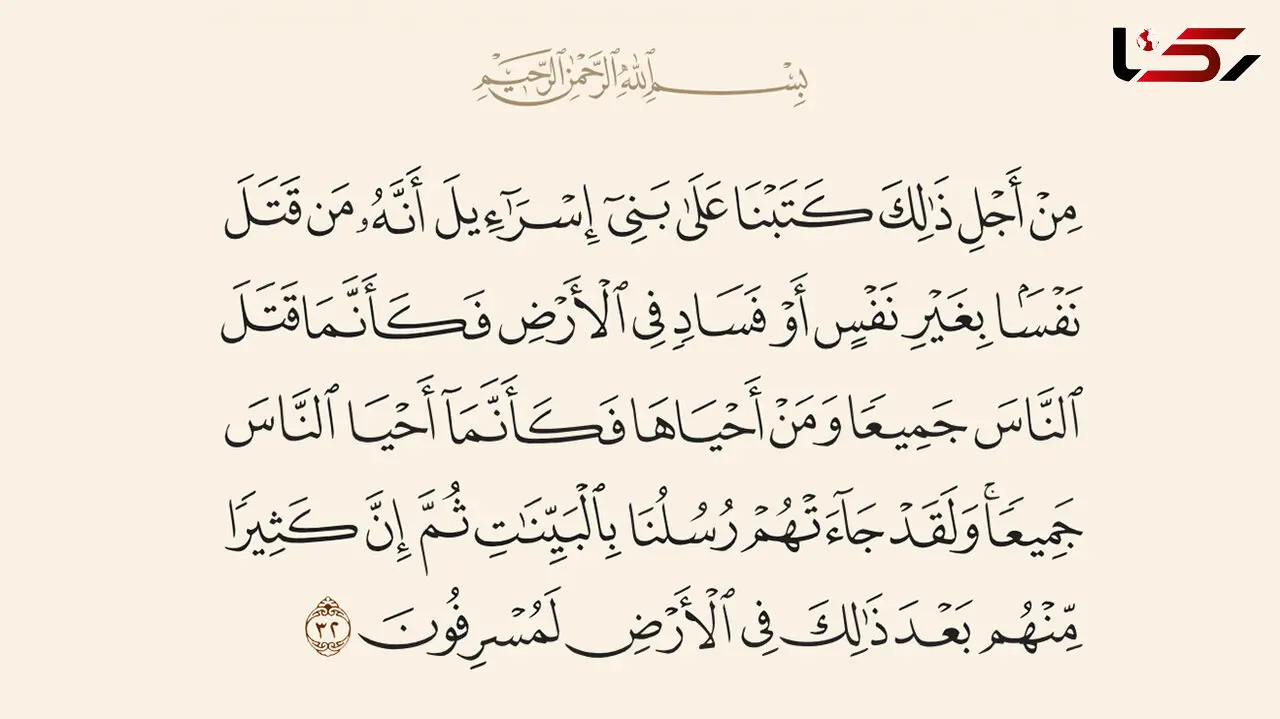 رکنا
بِسْمِ ٱللَّهِ ٱلرَّحْمَٰنِ ٱلرَّحِيمِ
مِنْ أَجْلِ ذَٰلِكَ كَتَبْنَا عَلَىٰ بَنِىٓ إِسْرَٰٓءِيلَ أَنَّهُۥ مَن قَتَلَ
نَفْسَۢا بِغَيْرِ نَفْسٍ أَوْ فَسَادٍ فِى ٱلْأَرْضِ فَكَأَنَّمَا قَتَلَ
ٱلنَّاسَ جَمِيعًا وَمَنْ أَحْيَاهَا فَكَأَنَّمَآ أَحْيَا ٱلنَّاسَ
جَمِيعًا ۚ وَلَقَدْ جَآءَتْهُمْ رُسُلُنَا بِٱلْبَيِّنَٰتِ ثُمَّ إِنَّ كَثِيرًا
مِّنْهُم بَعْدَ ذَٰلِكَ فِى ٱلْأَرْضِ لَمُسْرِفُونَ ٣٢